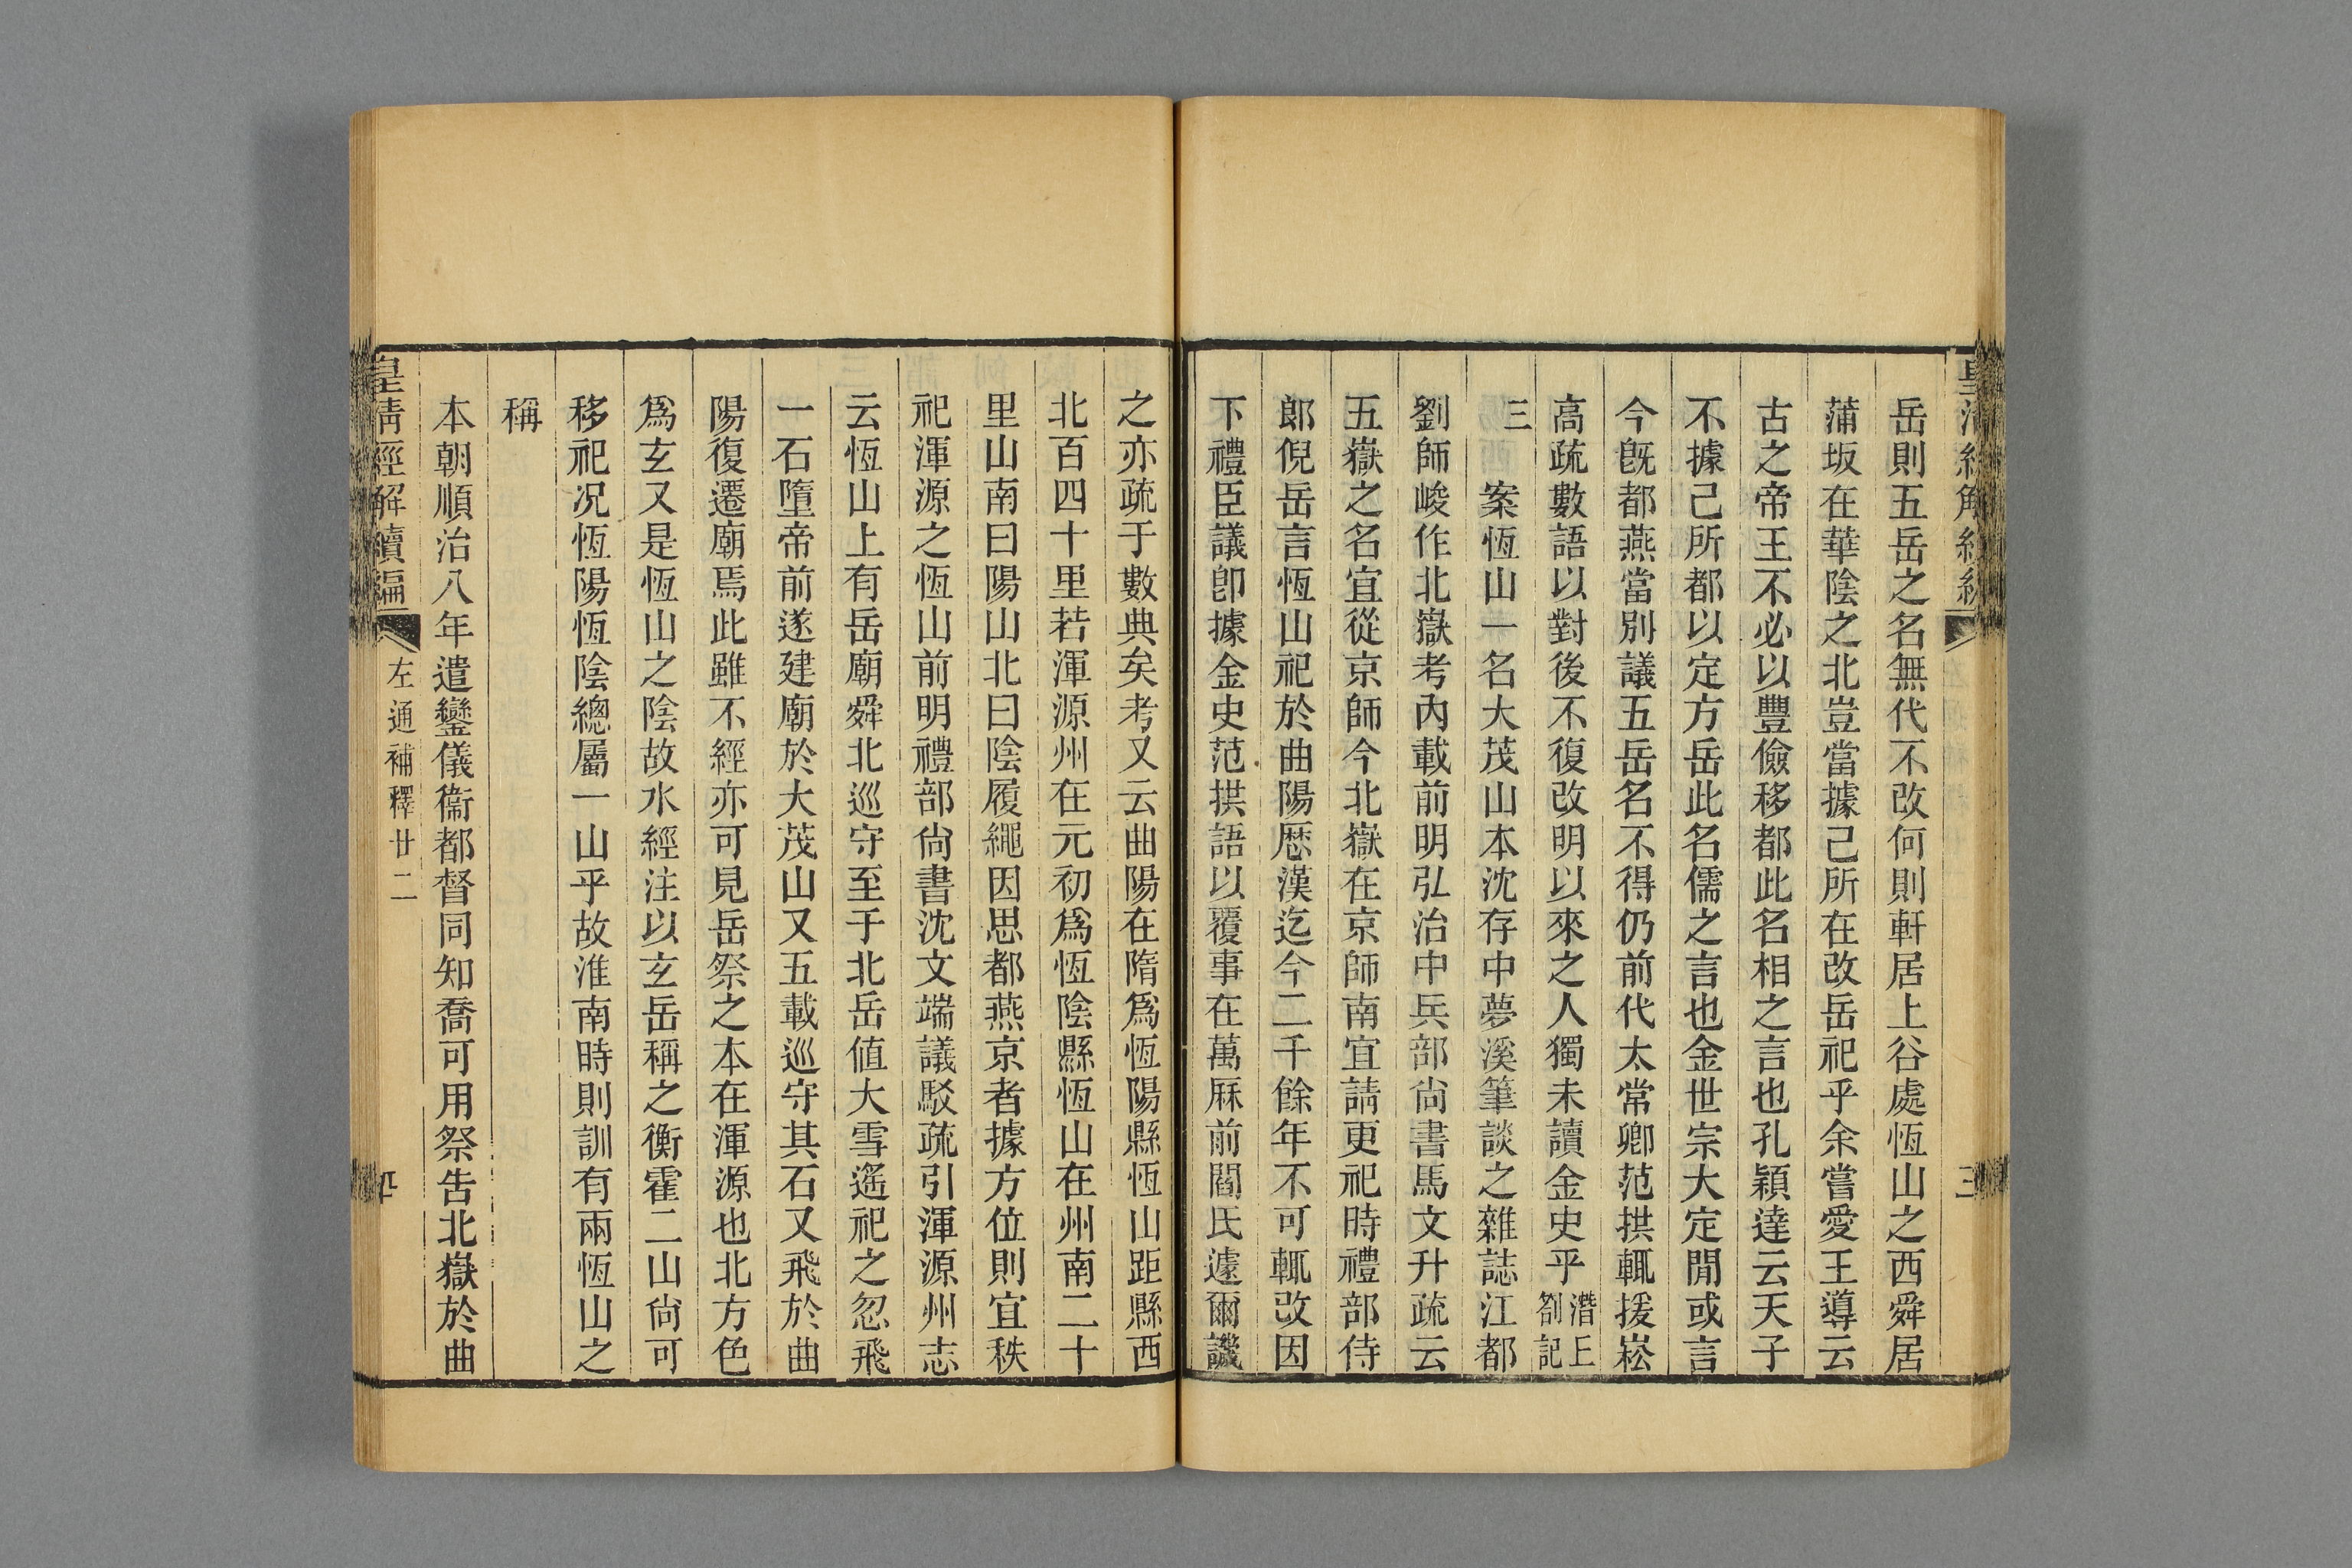 岳則五岳之名無代不改何則軒居上谷處恆山之西舜居
蒲坂在華陰之北豈當據己所在改岳祀乎余嘗愛王導云
古之帝王不必以豐儉移都此名相之言也孔穎達云天子
不據己所都以定方岳此名儒之言也金世宗大定閒或言
今旣都燕當別議五岳名不得仍前代太常卿范拱輒援崧
高疏數語以對後不復改明以來之人獨未讀金史乎潛丘
劄記
三
案恆山一名大茂山本沈存中夢溪筆談之雜誌江都
劉師峻作北嶽考內載前明弘治中兵部尙書馬文升疏云
五嶽之名宜從京師今北嶽在京師南宜請更祀時禮部侍
郎倪岳言恆山祀於曲陽歷漢迄今二千餘年不可輒改因
下禮臣議卽據金史范拱語以覆事在萬厤前閻氏遽爾譏
之亦疏于數典矣考又云曲陽在隋爲恆陽縣恆山距縣西
北百四十里若渾源州在元初爲恆陰縣恆山在州南二十
里山南曰陽山北曰陰履繩因思都燕京者據方位則宜秩
祀渾源之恆山前明禮部尙書沈文端議駁疏引渾源州志
云恆山上有岳廟舜北巡守至于北岳値大雪遙祀之忽飛
一石墮帝前遂建廟於大茂山又五載巡守其石又飛於曲
陽復遷廟焉此雖不經亦可見岳祭之本在渾源也北方色
爲玄又是恆山之陰故水經注以玄岳稱之衡霍二山尙可
移祀况恆陽恆陰總屬一山乎故淮南時則訓有兩恆山之
稱
本朝順治八年遣鑾儀衞都督同知喬可用祭告北嶽於曲
皇淸經解續編
左通補釋廿二